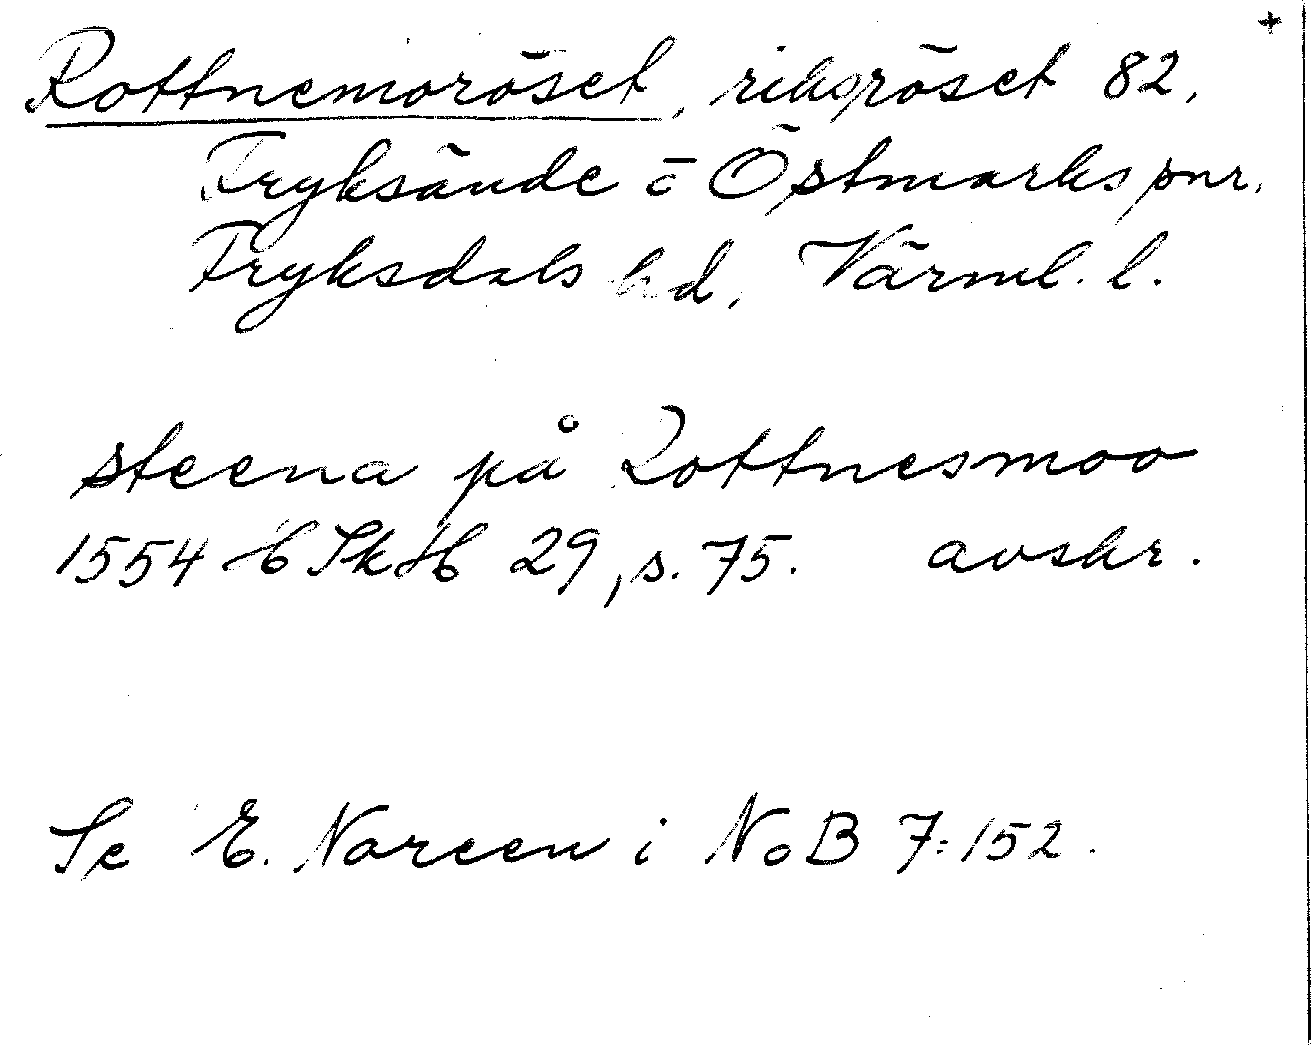 +
Rottnemoröset, riksröset 82,
Fryksände o Östmarks pnr,
Fryksdals hd, Värml. l.
steena på Rottnesmoo
1554 HSkH 29, s. 75. avskr.
Se E. Noreen i NoB 7:152.